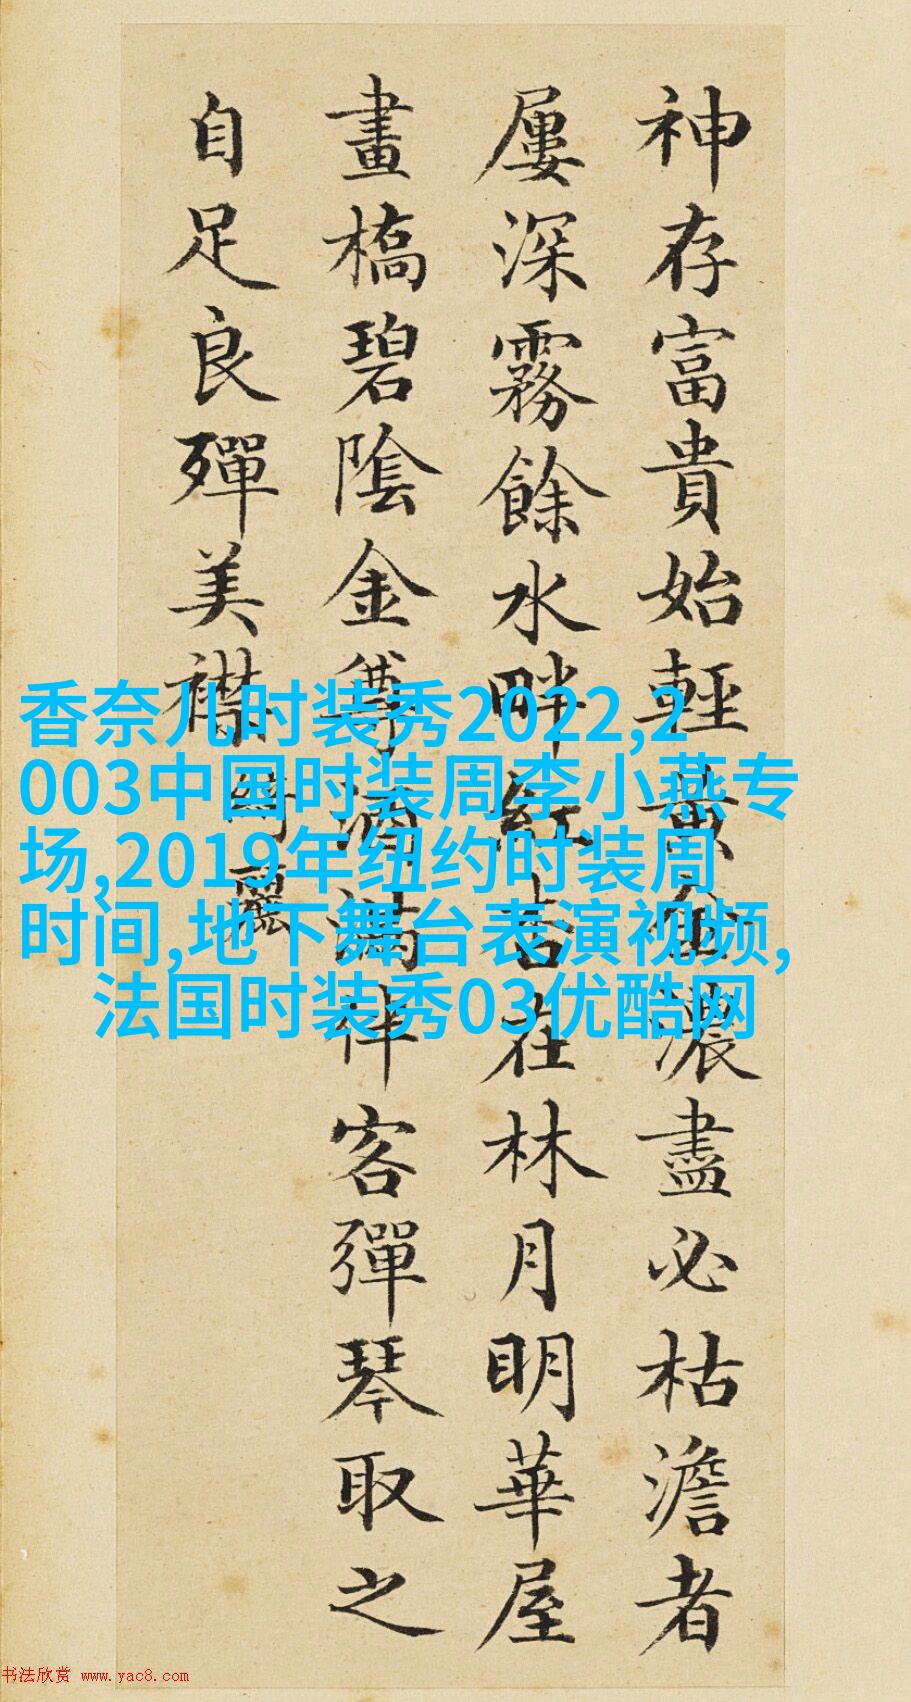 神存富貴始輕黃金濃盡必枯澹者
屢深霧餘水畔紅杏在林月明華屋
畫橋碧陰金尊酒滿伴客彈琴取之
自足良殫美襟
綺麗
香奈儿时装秀2022,2
003中国时装周李小燕专
场,2019年纽约时装周
时间,地下舞台表演视频,
法国时装秀03优酷网
书法欣赏 www.yac8.com